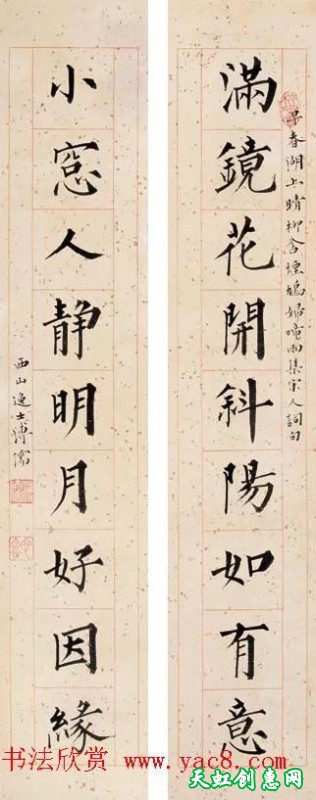 早春湖上晴柳含煙鳩婦喧雨集宋人詞句
滿鏡花開斜陽如有意
小窓人静明月好因緣
西山逸士溥儒
书法欣赏 www.yac8.com
天虹创惠网